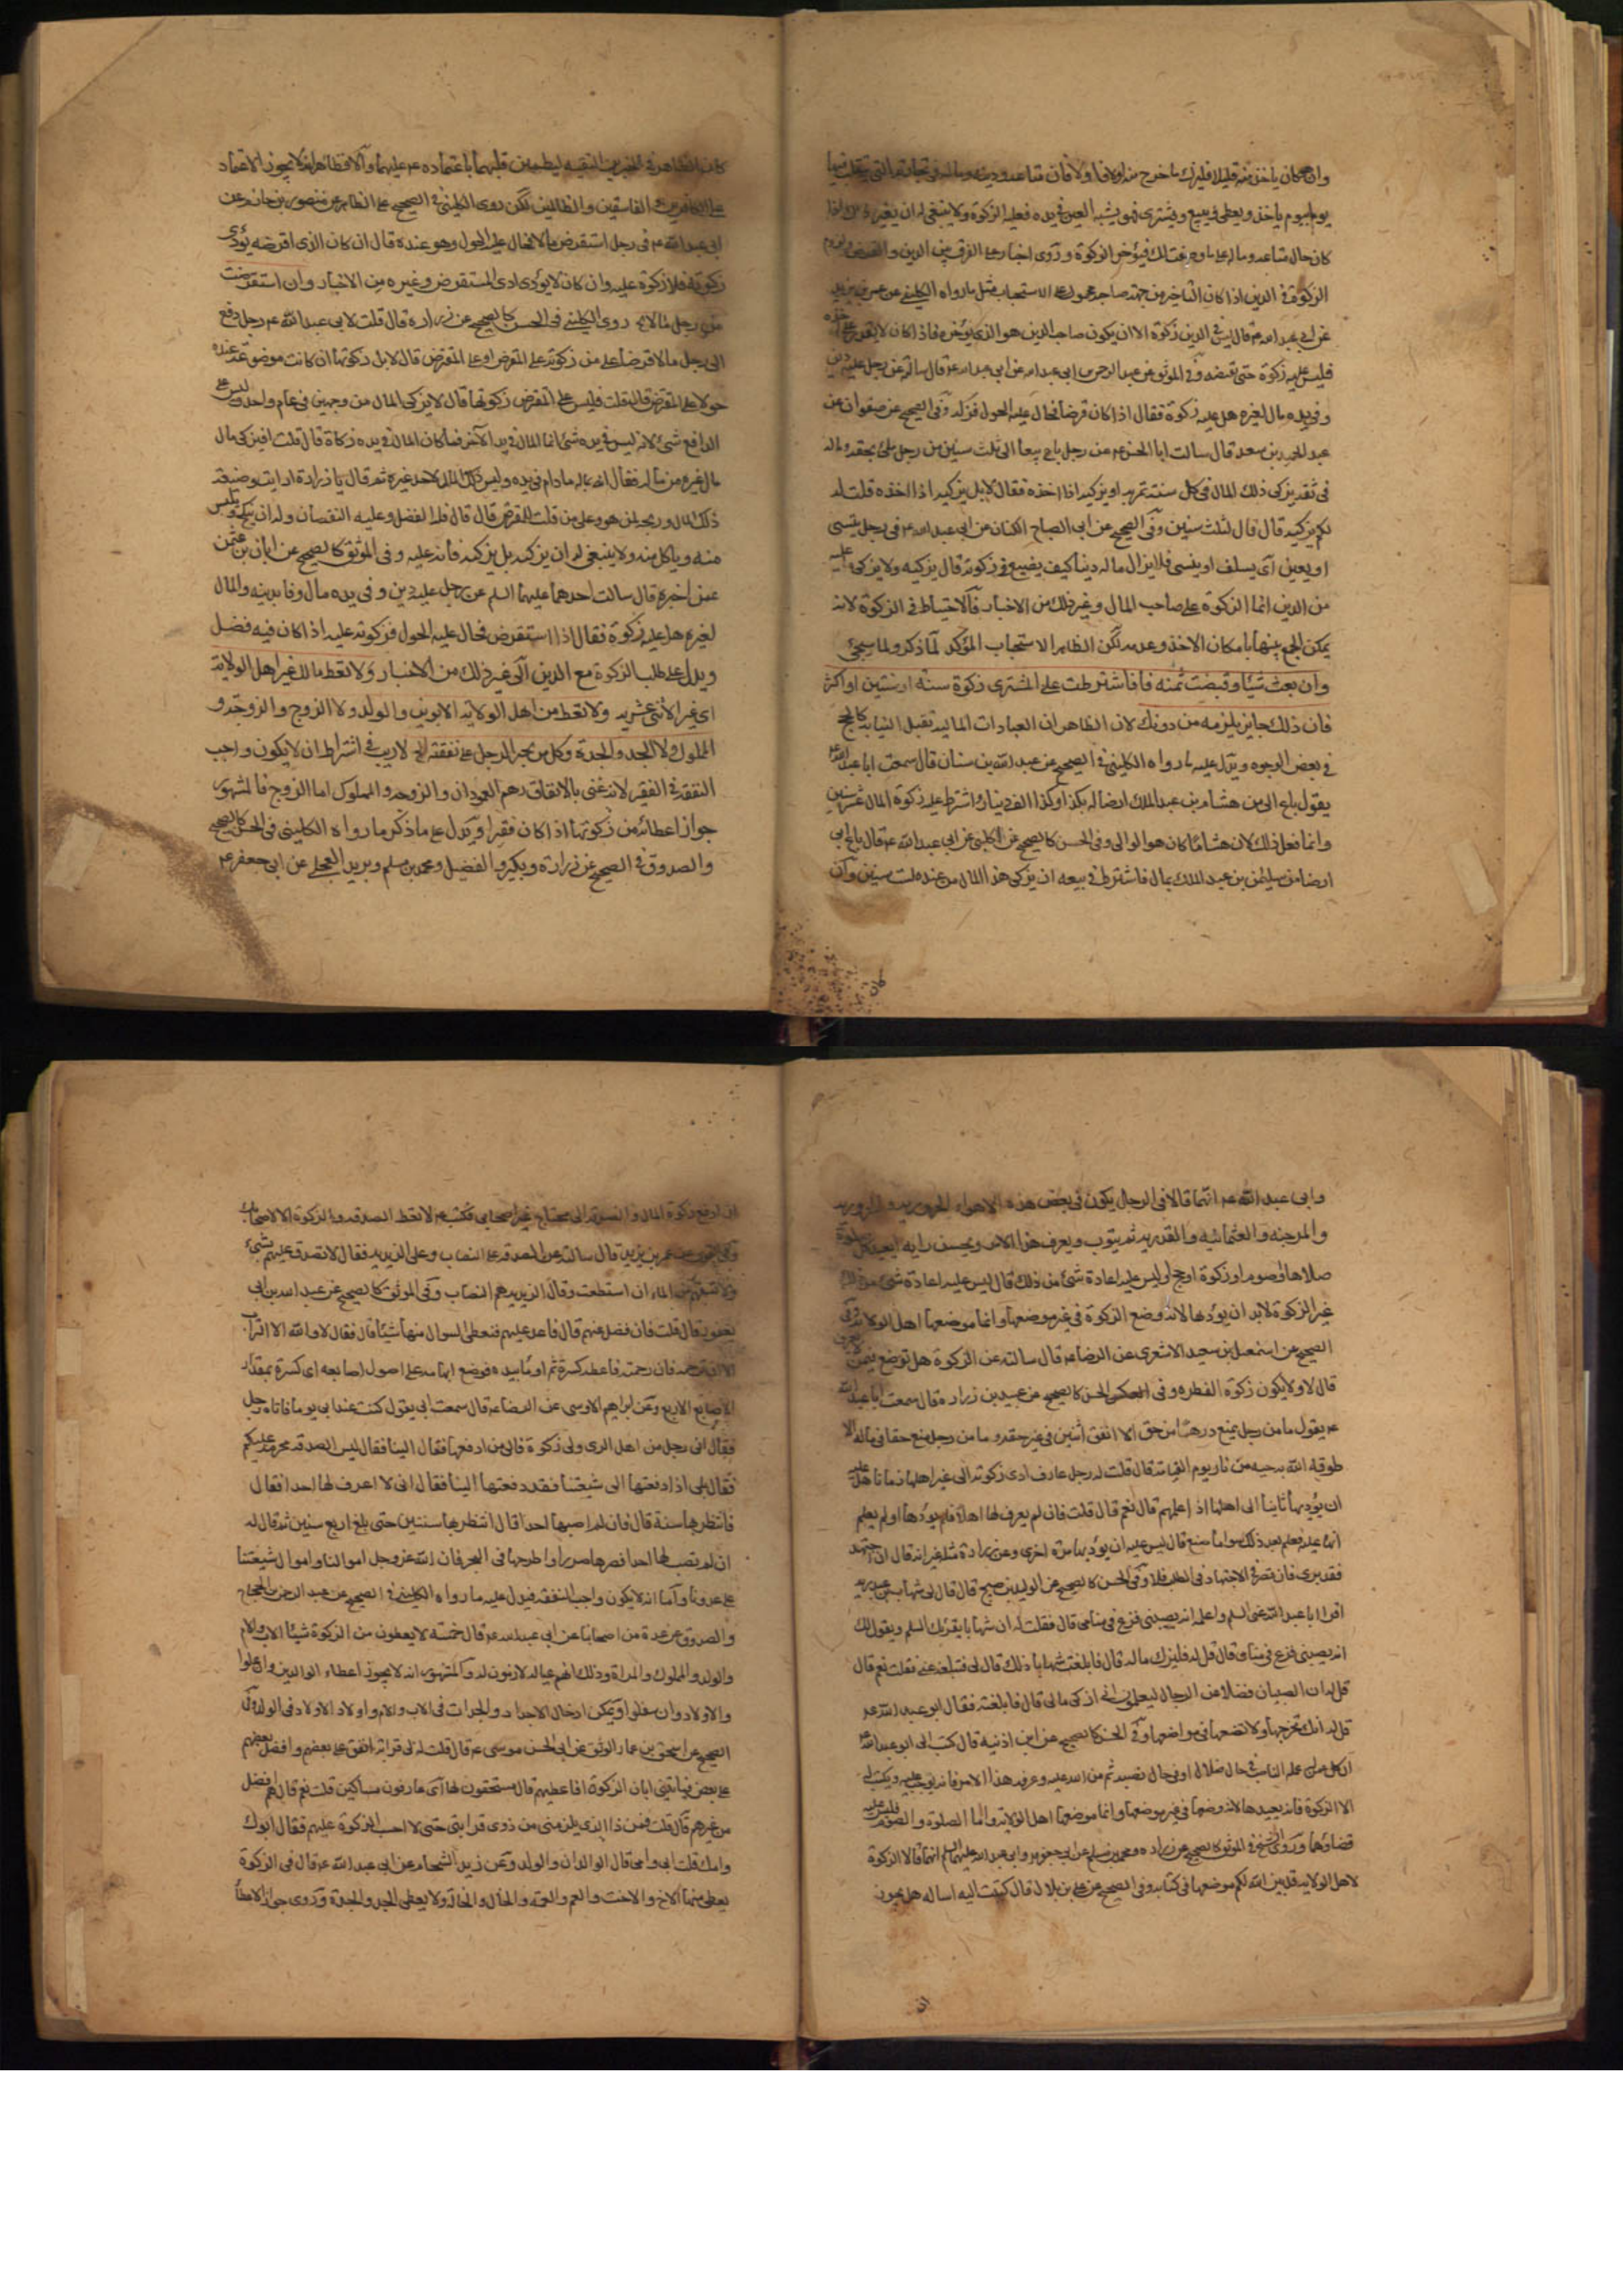 وان كان ياخذ منه قليلا قليلا فليزك ما خرج منه اولا فاولا فان متاعه ودينه وماله في تجارته التي يتقلب فيها
يوما بيوم ياخذ ويعطى ويبيع ويشترى فهو يشبه العين في يده فعليه الزكوة ولا ينبغى له ان يغير
كان حال متاعه وماله على ما وصفت لك فيؤخر الزكوة وروى اخبار على الفرق بين الدين والقرض
الزكوة في الدين اذا كان التاخير من جهة صاحبه محمول على الاستحباب مثل ما رواه الكليني عن عمر بن يزيد
عن ابي عبد الله ع قال ليس في الدين زكوة الا ان يكون صاحب الدين هو الذي يؤخره فاذا كان لا يقدر على اخذه
فليس عليه زكوة حتى يقبضه وفي الموثق عن عبد الرحمن بن ابى عبد الله عن ابى عبد الله ع قال سالته عن رجل عليه دين
وفي يده مال لغيره هل عليه زكوة فقال اذا كان قرضا فحال عليه الحول فزكه وفى الصحيح عن صفوان عن
عبد الحميد بن سعد قال سالت ابا الحسن ع عن رجل باع بيعا الى ثلث سنين من رجل ملئ بحقه وماله
فى ثقة يزكى ذلك المال فى كل سنة تمر به او يزكيه اذا اخذه فقال لا بل يزكيه اذا اخذه قلت له
لكم يزكيه قال قال لثلث سنين وفى الصحيح عن ابى الصباح الكنانى عن ابى عبد الله ع فى رجل ينسى
او يعين اى يسلف او ينسى فلا يزال ماله دينا كيف يصنع فى زكوته قال يزكيه ولا يزكى ما عليه
من الدين انما الزكوة على صاحب المال وغير ذلك من الاخبار فالاحتياط في الزكوة لانه
يمكن الجمع بينها بامكان الاخذ وعدمه لكن الظاهر الاستحباب المؤكد لما ذكر ولما سيجئ
وان بعت شيئا وقبضت ثمنه فاشترطت على المشترى زكوة سنة او سنتين او اكثر
فان ذلك جايز يلزمه من دونك لان الظاهر ان العبادات المالية تقبل النيابة كالحج
في بعض الوجوه ويدل عليه ما رواه الكليني في الصحيح عن عبد الله بن سنان قال سمعت ابا عبد الله ع
يقول باع ابى من هشام بن عبد الملك ارضا له بكذا وكذا الف دينار واشترط عليه زكوة المال عشر سنين
وانما فعل ذلك لان هشاما كان هو الوالى وفى الحسن كالصحيح عن الحلبى عن ابى عبد الله ع قال باع ابى
ارضا من سليمن بن عبد الملك بمال فاشترط في بيعه ان يزكى هذا المال من عنده لست سنين وان
كان الظاهر في الخبرين التقيه ليطمئن قلبهما باعتماده ع عليهما والا فظاهر انه لا يجوز الاعتماد
على الكافرين الفاسقين والظالمين لكن روى الكليني في الصحيح على الظاهر عن منصور بن حازم عن
ابى عبد الله ع فى رجل استقرض مالا فحال عليه الحول وهو عنده قال ان كان الذى اقرضه يؤدى
زكوته فلا زكوة عليه وان كان لا يؤدى ادى المستقرض وغيره من الاخبار وان استقرضت
من رجل مالا روى الكليني فى الحسن كالصحيح عن زرارة قال قلت لابى عبد الله ع رجل دفع
الى رجل مالا قرضا على من زكوته على المقرض او على المقترض قال لا بل زكوتها ان كانت موضوعة عنده
حولا على المقترض قال قلت فليس على المقرض زكوتها قال لا يزكى المال من وجهين فى عام واحد وليس على
الدافع شئ لانه ليس في يده شئ انما المال في يد الآخر فمن كان المال في يده زكاه قال قلت افيزكى مال
مال غيره من ماله فقال انه ماله ما دام فى يده وليس ذلك المال لاحد غيره ثم قال يا زرارة ارايت وضيعة
ذلك المال وربحه لمن هو وعلى من قلت للمقترض قال فله الفضل وعليه النقصان وله ان ينكح ويلبس
منه وياكل منه ولا ينبغى له ان يزكيه بل يزكيه فانه عليه وفى الموثق كالصحيح عن ابان بن عثمن
عمن اخبره قال سالت احدهما عليهما السلم عن رجل عليه دين وفى يده مال وفا بدينه والمال
لغيره هل عليه زكوة فقال اذا استقرض فحال عليه الحول فزكوته عليه اذا كان فيه فضل
ويدل على طلب الزكوة مع الدين الى غير ذلك من الاخبار ولا تعط مالك غير اهل الولاية
اى غير الاثنى عشرية ولا تعط من اهل الولاية الابوين والولد ولا الزوج والزوجة و
المملوك ولا الجد والجدة وكل من يجبر الرجل على نفقته لا ريب في اشتراط ان لا يكون واجب
النفقة في الفقير لانه غنى بالانفاق وهم العمودان والزوجة والمملوك اما الزوج فالمشهور
جواز اعطائه من زكوتها اذا كان فقيرا ويدل على ما ذكر ما رواه الكليني فى الحسن كالصحيح
والصدوق في الصحيح عن زرارة وبكير والفضيل ومحمد بن مسلم وبريد العجلى عن ابى جعفر ع
وابى عبد الله ع انهما قالا فى الرجل يكون فى بعض هذه الاهواء الحرورية
والمرجئة والعثمانية والقدرية ثم يتوب ويعرف هذا الامر ويحسن رايه ايعيد كل صلوة
صلاها او صوم او زكوة او حج او ليس عليه اعادة شئ من ذلك قال ليس عليه اعادة شئ من ذلك
غير الزكوة لا بد ان يؤديها لانه وضع الزكوة فى غير موضعها وانما موضعها اهل الولاية وفى
الصحيح عن اسمعيل بن سعد الاشعرى عن الرضا ع قال سالته عن الزكوة هل توضع فيمن لا يعرف
قال لا ولا يكون زكوة الفطره وفى الحسن كالصحيح عن عبيد بن زرارة قال سمعت ابا عبد الله
ع يقول ما من رجل يمنع درهما من حق الا انفق اثنين فى غير حقه وما من رجل منع حقا فى ماله الا
طوقه الله به حيه من نار يوم القيامة قال قلت له رجل عارف ادى زكوته الى غير اهلها زمانا هل عليه
ان يؤديها ثانيا الى اهلها اذا علمهم قال نعم قال قلت فان لم يعرف لها اهلا فلم يؤدها او لم يعلم
انها عليه فعلم بعد ذلك قال ليس عليه ان يؤديها مرة اخرى وعن زرارة مثله غير انه قال ان اجتهد
فقد برئ فان قصر في الاجتهاد فى الطلب فلا وفى الحسن كالصحيح عن الوليد بن صبيح قال قال لى شهاب بن عبد ربه
اقرا ابا عبد الله عنى السلم واعلمه انه يصيبنى فزع فى منامى قال فقلت له ان شهابا يقرئك السلم ويقول لك
انه يصيبنى فزع فى منامى قال قل له فليزك ماله قال فابلغت شهابا ذلك قال لى فتبلغه عنى فقلت نعم قال
قل له ان الصبيان فضلا عن الرجال ليعلمون انى ازكى مالى قال فابلغته فقال ابو عبد الله ع
قل له انك تخرجها ولا تضعها فى مواضعها وفى الحسن كالصحيح عن ابن اذينه قال كتب الى ابو عبد الله ع
ان كل عمل عمله الناصب في حال ضلاله او فى حال نصبه ثم من الله عليه وعرفه هذا الامر فانه يوجر عليه ويكتب له
الا الزكوة فانه يعيدها لانه وضعها فى غير موضعها وانما موضعها اهل الولاية واما الصلوة والصوم فليس عليه
قضاؤهما وروى الشيخ في الموثق كالصحيح عن زرارة ومحمد بن مسلم عن ابى جعفر وابى عبد الله عليهما السلم انهما قالا الزكوة
لاهل الولاية قد بين الله لكم موضعها فى كتابه وفى الصحيح عن على بن بلال قال كتبت اليه اساله هل يجوز
ان ادفع زكوة المال والصدقة الى محتاج غير اصحابى فكتب لا تعط الصدقه والزكوة الا لاصحابك
عن عمر بن يزيد قال سالته عن الصدقة على النصاب وعلى الزيديه فقال لا تصدق عليهم بشئ
ولا تسقهم من الماء ان استطعت وقال الزيديه هم النصاب وفى الموثق كالصحيح عن عبد الله بن ابى
يعفور قال قلت فان فضل عنهم قال فاعد عليهم فنعطى السوال منها شيئا قال فقال لا والله الا التراب
الا ان ترحمه فان رحمته فاعطه كسرة ثم اوما بيده فوضع ابهامه على اصول اصابعه اى كسرة بمقدار
الاصابع الاربع وعن ابراهيم الاوسى عن الرضا ع قال سمعت ابى يقول كنت عند ابى يوما فاتاه رجل
فقال انى رجل من اهل الرى ولى زكوة فالى من ادفعها فقال الينا فقال ليس الصدقة محرمة عليكم
فقال بلى اذا دفعتها الى شيعتنا فقد دفعتها الينا فقال انى لا اعرف لها احدا فقال
فانتظر بها سنة قال فان لم اصب لها احدا قال انتظر بها سنتين حتى بلغ اربع سنين ثم قال له
ان لم تصب لها احدا فصرها صررا واطرحها فى البحر فان الله عز وجل حرم اموالنا واموال شيعتنا
على عدونا واما انه لا يكون واجب النفقة فيدل عليه ما رواه الكليني في الصحيح عن عبد الرحمن بن الحجاج
والصدوق عن عدة من اصحابنا عن ابى عبد الله ع قال خمسة لا يعطون من الزكوة شيئا الاب والام
والولد والمملوك والمراة وذلك انهم عياله لازمون له والمشهور انه لا يجوز اعطاء الوالدين وان علوا
والاولاد وان سفلوا ويمكن ادخال الاجداد والجدات فى الاب والام واولاد الاولاد فى الولد وفى
الصحيح عن اسحق بن عمار الموثق عن ابى الحسن موسى ع قال قلت له لى قرابة انفق على بعضهم وافضل بعضهم
على بعض فياتينى ابان الزكوة افاعطيهم قال مستحقون لها اى عارفون مساكين قلت نعم قال هم افضل
من غيرهم قال قلت فمن ذا الذى يلزمنى من ذوى قرابتى حتى لا احسب الزكوة عليهم فقال ابوك
وامك قلت ابى وامى قال الوالدان والولد وعن زيد الشحام عن ابى عبد الله ع قال فى الزكوة
يعطى منها الاخ والاخت والعم والعمة والخال والخالة ولا يعطى الجد والجدة وروى جواز الاعطاء